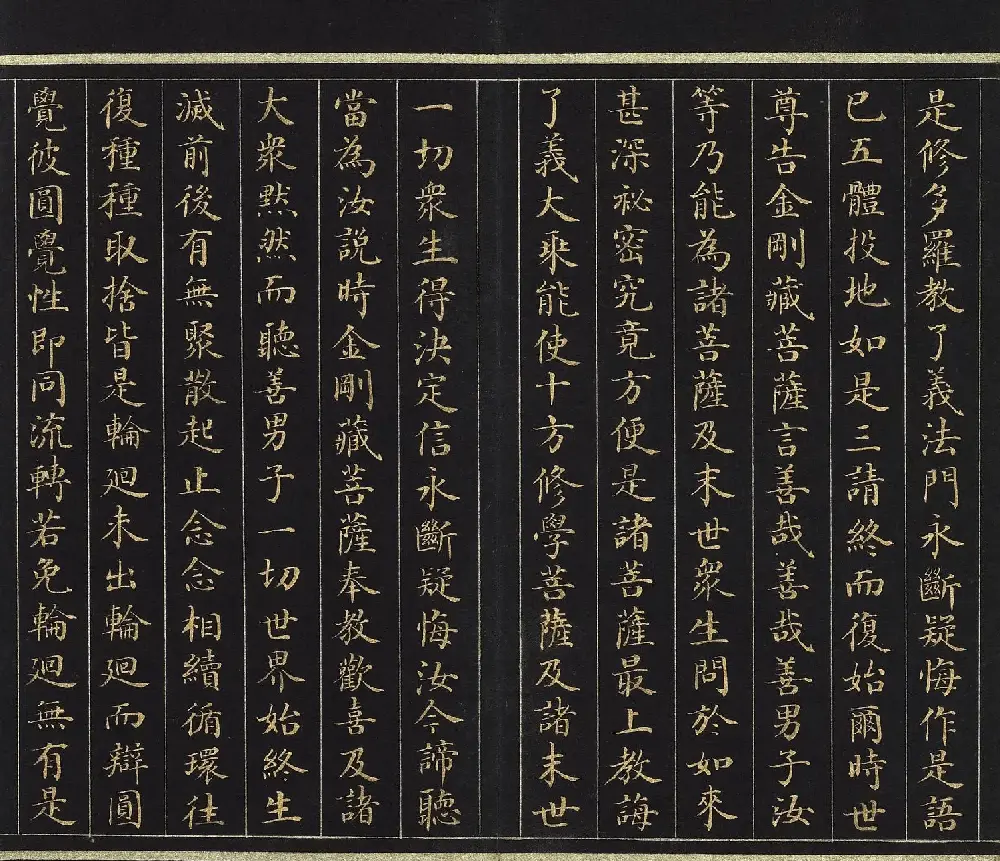 是修多羅教了義法門永斷疑悔作是語
已五體投地如是三請終而復始爾時世
尊告金剛藏菩薩言善哉善哉善男子汝
等乃能為諸菩薩及末世衆生問於如來
甚深祕密究竟方便是諸菩薩最上教誨
了義大乘能使十方修學菩薩及諸末世
一切衆生得決定信永斷疑悔汝今諦聽
當為汝說時金剛藏菩薩奉教歡喜及諸
大衆黙然而聽善男子一切世界始終生
滅前後有無聚散起止念念相續循環往
復種種取捨皆是輪廻未出輪廻而辯圓
覺彼圓覺性即同流轉若免輪廻無有是